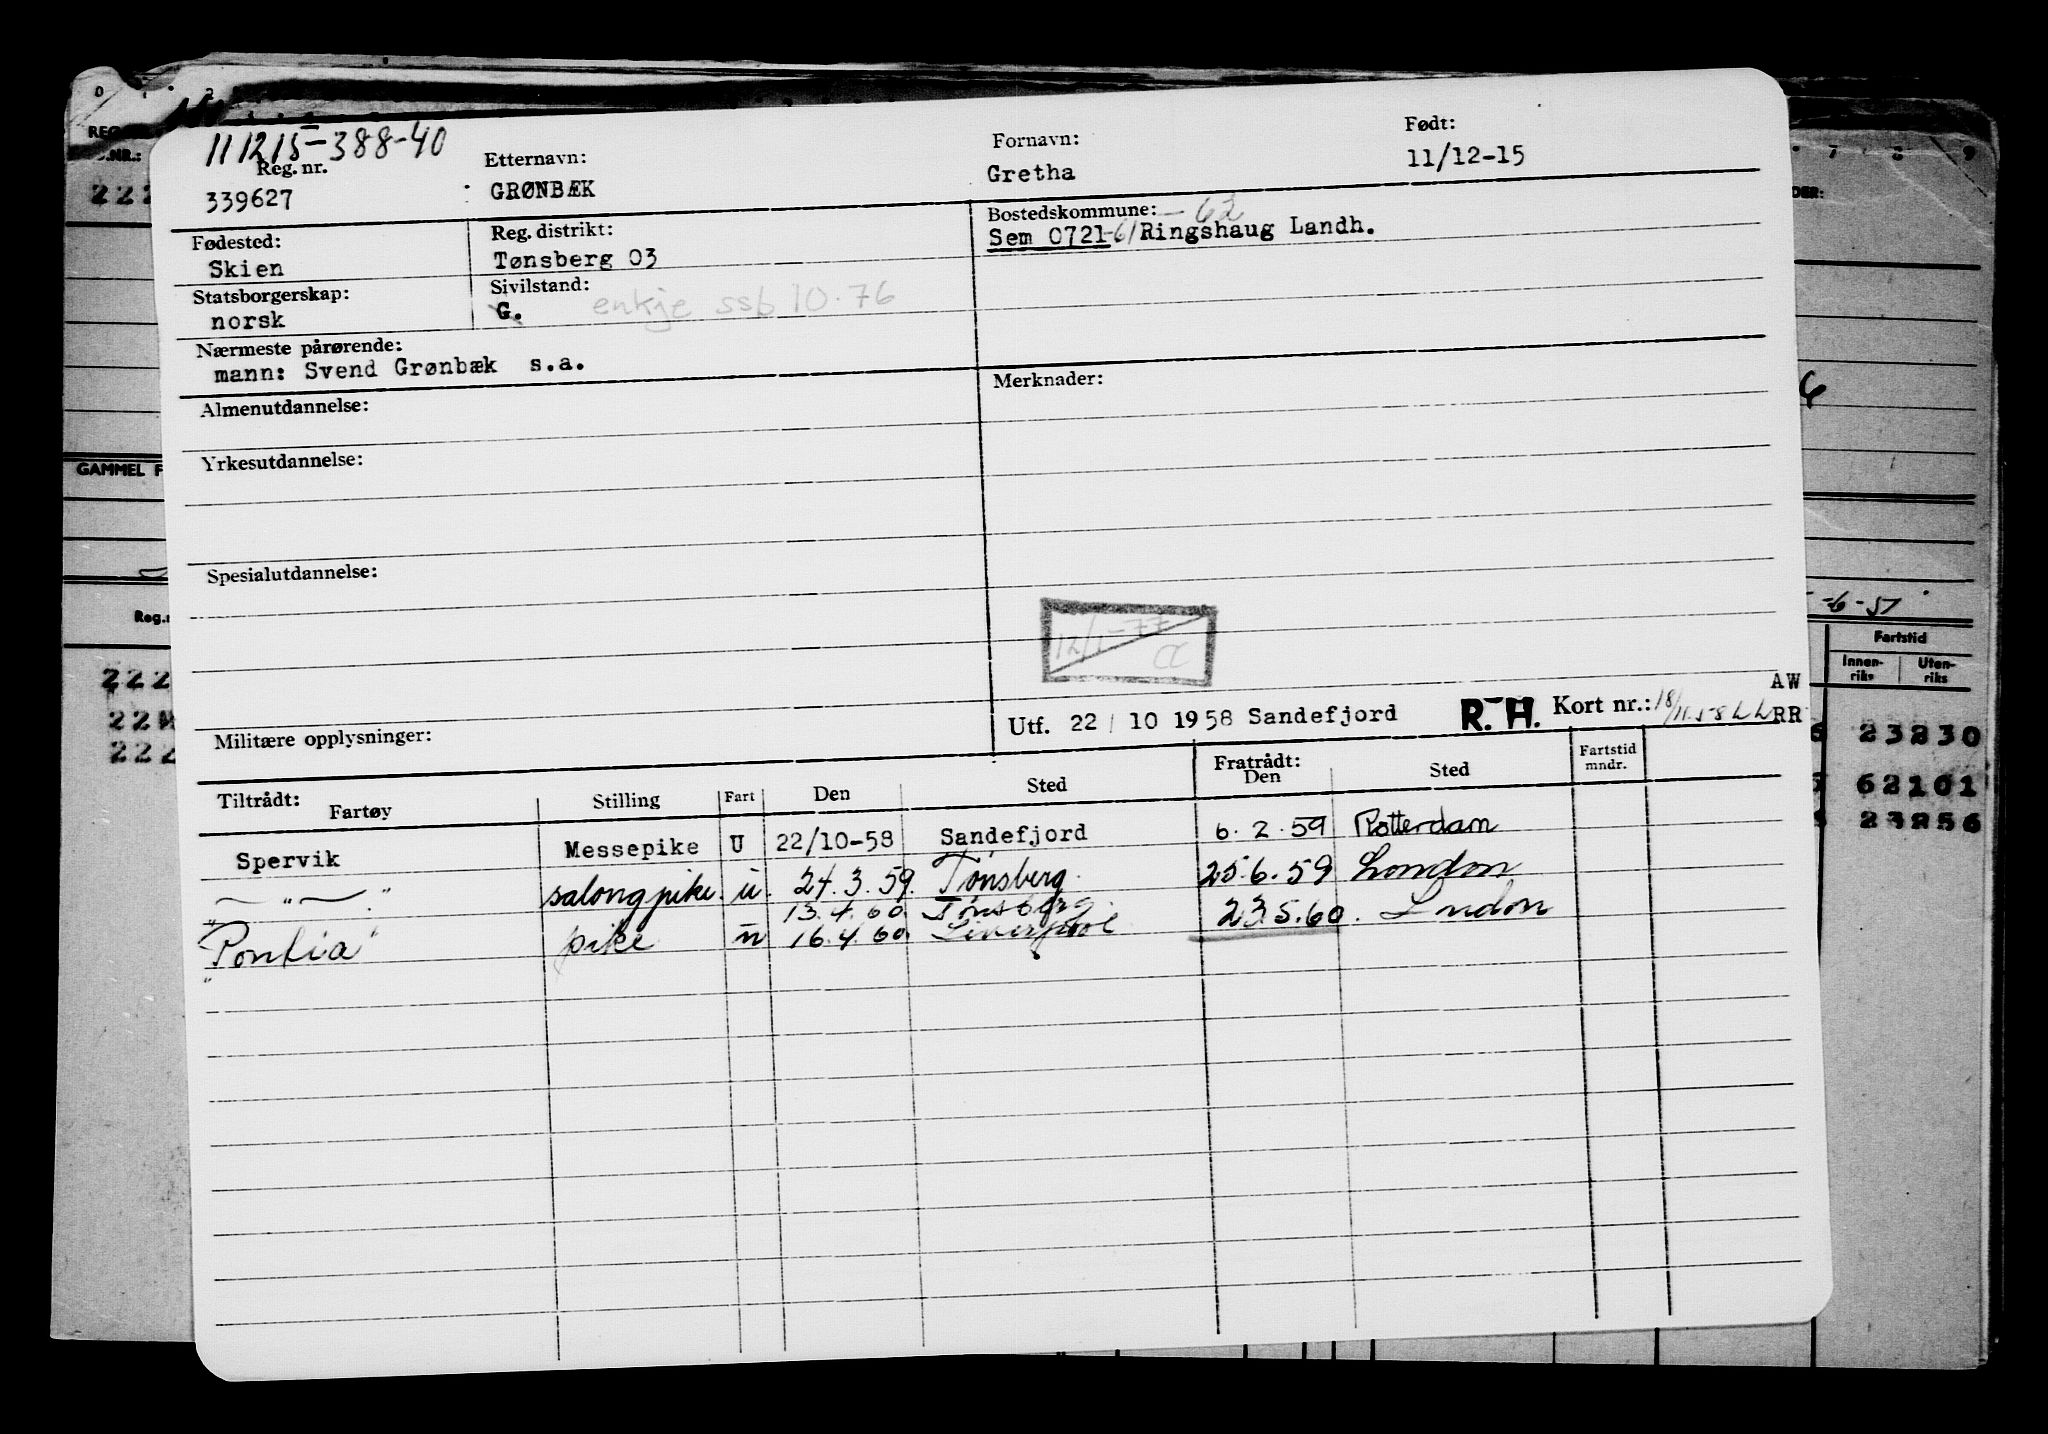 111215-388-40
Reg. nr. Etternavn: Fornavn: Født:
339627 GRØNBÆK Gretha 11/12-15
Fødested: Reg. distrikt: Bostedskommune: - 62
Skien Tønsberg 03 Sem 0721-61 Ringshaug Landh.
Statsborgerskap: Sivilstand:
norsk G. enkje ssb 10.76
Nærmeste pårørende:
mann: Svend Grønbæk s.a.
Almenutdannelse: Merknader:
Yrkesutdannelse:
Spesialutdannelse:
12/1-77
Militære opplysninger:
AW
Utf. 22/10 1958 Sandefjord R.H. Kort nr.: 18/11.58 RR
Tiltrådt: Fratrådt:
Fartøy Stilling Fart Den Sted Den Sted Fartstid mndr.
Spervik Messepike U 22/10-58 Sandefjord 6.2.59 Rotterdam
— " — salongpike. u. 24.3.59. Tønsberg. 25.6.59 London
13.4.60. Tønsberg
"Pontia" pike u 16.4.60. Liverpool 23.5.60. London
0 2
7 8 9
GAMMEL F
-6-51
Fartstid
Innen-riks Uten-riks
222
222
23230
62101
222 23256